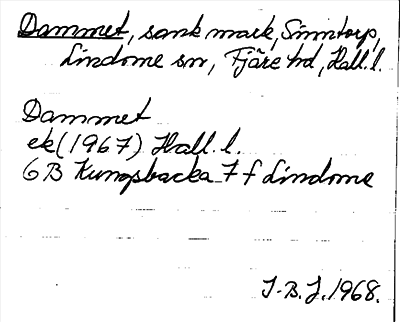 Dammet, sank mark, Sinntorp,
Lindome sn, Fjäre hd, Hall. l.
Dammet
ek (1967) Hall. l.
6 B Kungsbacka 7 f Lindome
J.B.J. 1968.